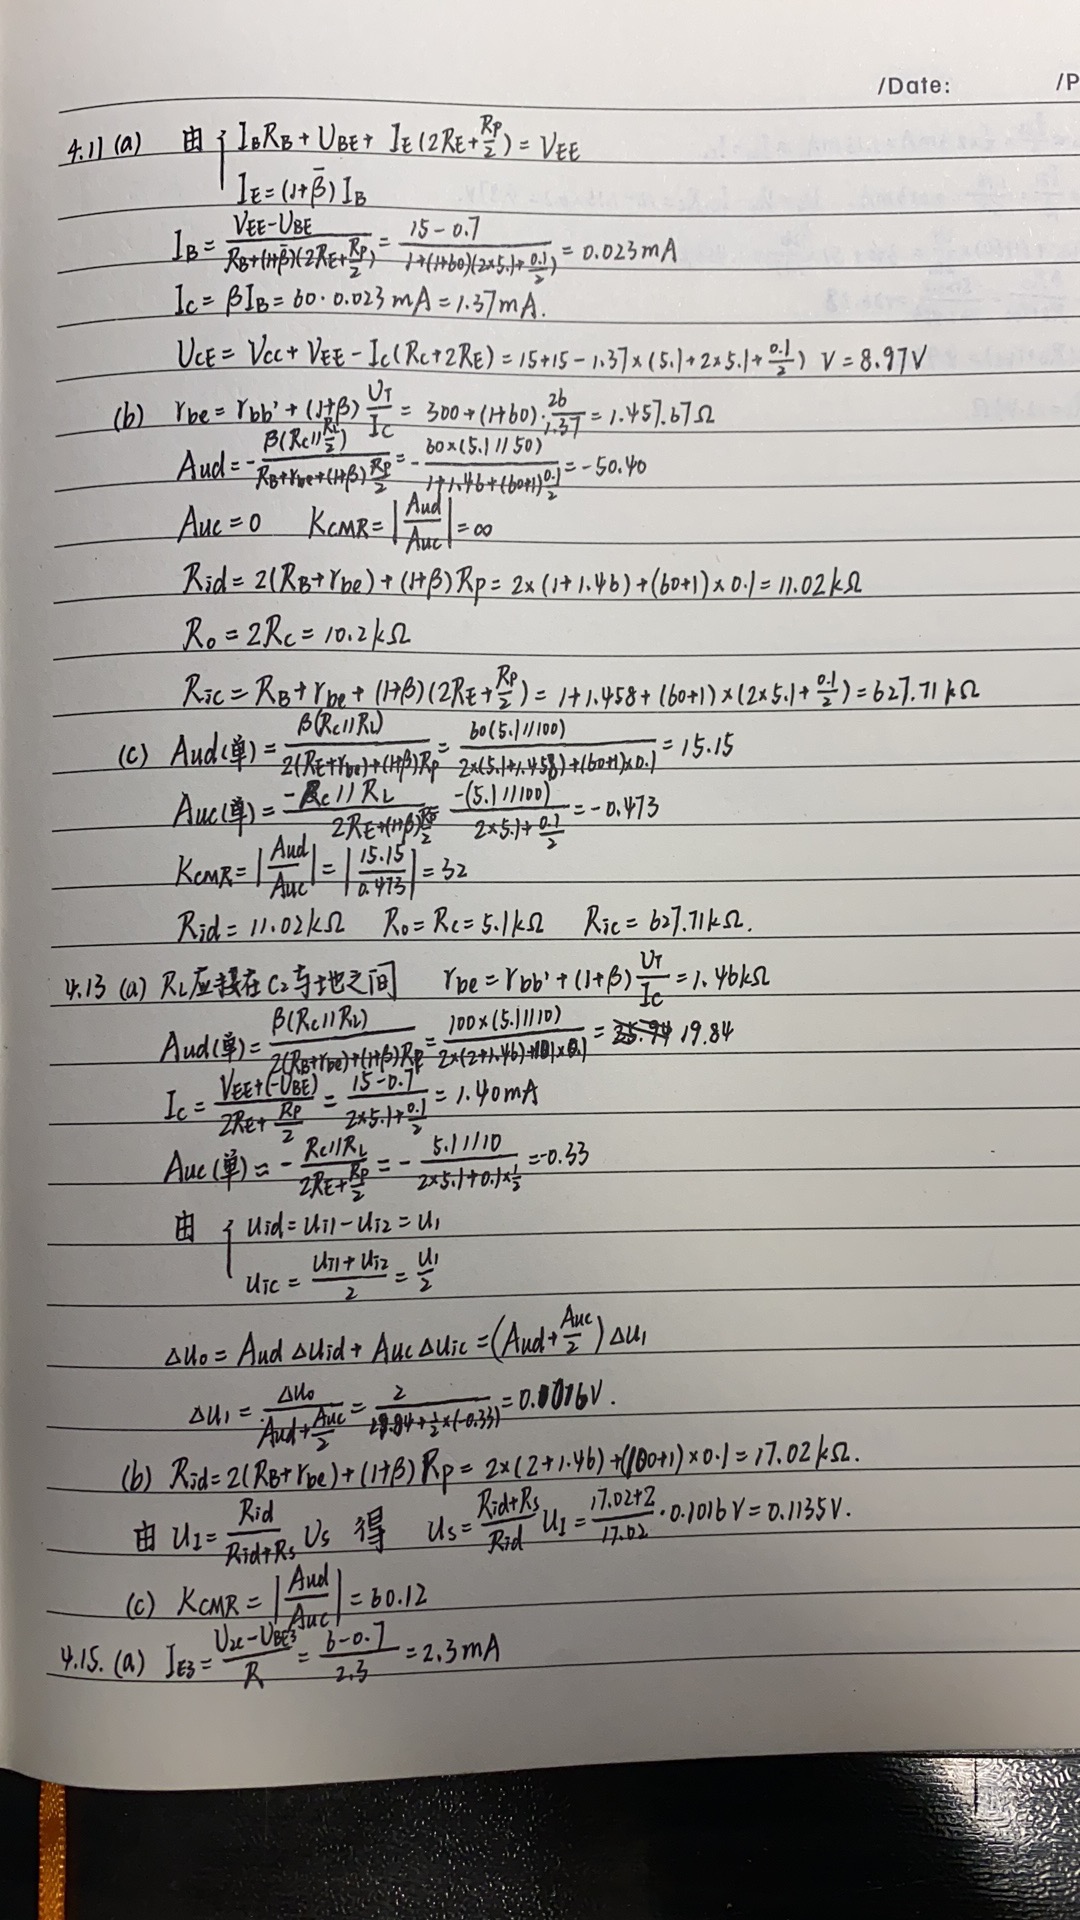 /Date: /P
4.11 (a) 由 { IBRB + UBE + IE(2RE + RP/2) = VEE
IE = (1+β̄) IB
IB = (VEE-UBE)/(RB+(1+β̄)(2RE+RP/2)) = (15-0.7)/(1+(1+60)(2×5.1+0.1/2)) = 0.023mA
IC = βIB = 60·0.023mA = 1.37mA.
UCE = VCC + VEE - IC(RC+2RE) = 15+15-1.37×(5.1+2×5.1+0.1/2) V = 8.97V
(b) rbe = rbb' + (1+β) UT/IC = 300+(1+60)·26/1.37 = 1.457.67Ω
Aud = -β(RC//RL/2)/(RB+rbe+(1+β)RP/2) = -60×(5.1//50)/(1+1.46+(60+1)0.1/2) = -50.40
Auc = 0 KCMR = |Aud/Auc| = ∞
Rid = 2(RB+rbe)+(1+β)RP = 2×(1+1.46)+(60+1)×0.1 = 11.02kΩ
Ro = 2RC = 10.2kΩ
Ric = RB+rbe+(1+β)(2RE+RP/2) = 1+1.458+(60+1)×(2×5.1+0.1/2) = 627.71kΩ
(c) Aud(单) = β(RC//RL)/(2(RE+rbe)+(1+β)RP) = 60(5.1//100)/(2×(5.1+1.458)+(60+1)×0.1) = 15.15
Auc(单) = -RC//RL/(2RE+(1+β)RP/2) = -(5.1//100)/(2×5.1+0.1/2) = -0.473
KCMR = |Aud/Auc| = |15.15/0.473| = 32
Rid = 11.02kΩ Ro = RC = 5.1kΩ Ric = 627.71kΩ.
4.13 (a) RL应接在C2与地之间 rbe = rbb' + (1+β) UT/IC = 1.46kΩ
Aud(单) = β(RC//RL)/(2(RB+rbe)+(1+β)RP) = 100×(5.1//10)/(2×(2+1.46)+101×0.1) = 19.84
IC = (VEE+(-UBE))/(2RE+RP/2) = (15-0.7)/(2×5.1+0.1/2) = 1.40mA
Auc(单) = -RC//RL/(2RE+RP/2) = -5.1//10/(2×5.1+0.1×1/2) = -0.33
由 { uid = ui1-ui2 = u1
uic = (ui1+ui2)/2 = u1/2
Δuo = AudΔuid + AucΔuic = (Aud+Auc/2)Δu1
Δu1 = Δuo/(Aud+Auc/2) = 2/(19.84+1/2×(-0.33)) = 0.1016V.
(b) Rid = 2(RB+rbe)+(1+β)RP = 2×(2+1.46)+(100+1)×0.1 = 17.02kΩ.
由 UI = Rid/(Rid+Rs) Us 得 Us = (Rid+Rs)/Rid UI = (17.02+2)/17.02·0.1016V = 0.1135V.
(c) KCMR = |Aud/Auc| = 60.12
4.15. (a) IE3 = (U2c-UBE3)/R = (6-0.7)/2.3 = 2.3mA